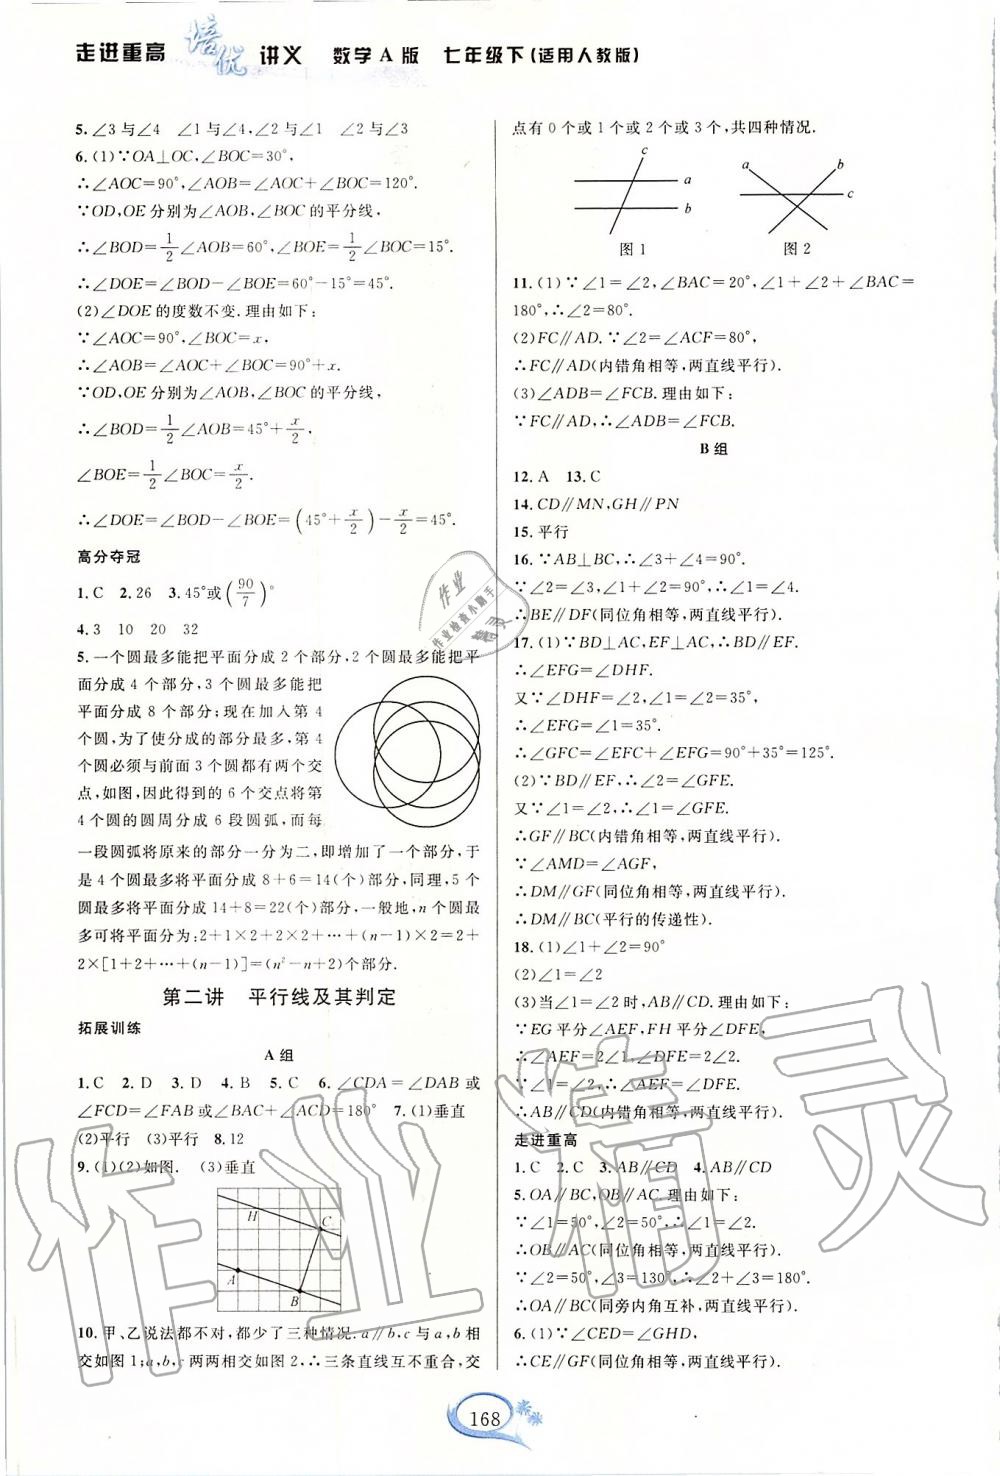 走进重高 培优 讲义 数学A版 七年级下(适用人教版)
5.∠3与∠4 ∠1与∠4,∠2与∠1 ∠2与∠3
6.(1)∵OA⊥OC,∠BOC=30°,
∴∠AOC=90°,∠AOB=∠AOC+∠BOC=120°.
∵OD,OE分别为∠AOB,∠BOC的平分线,
∴∠BOD=1/2∠AOB=60°,∠BOE=1/2∠BOC=15°.
∴∠DOE=∠BOD-∠BOE=60°-15°=45°.
(2)∠DOE的度数不变.理由如下:
∵∠AOC=90°,∠BOC=x,
∴∠AOB=∠AOC+∠BOC=90°+x.
∵OD,OE分别为∠AOB,∠BOC的平分线,
∴∠BOD=1/2∠AOB=45°+x/2,
∠BOE=1/2∠BOC=x/2.
∴∠DOE=∠BOD-∠BOE=(45°+x/2)-x/2=45°.
高分夺冠
1.C 2.26 3.45°或(90/7)°
4.3 10 20 32
5.一个圆最多能把平面分成2个部分,2个圆最多能把平
面分成4个部分,3个圆最多能把
平面分成8个部分;现在加入第4
个圆,为了使分成的部分最多,第4
个圆必须与前面3个圆都有两个交
点,如图,因此得到的6个交点将第
4个圆的圆周分成6段圆弧,而每
一段圆弧将原来的部分一分为二,即增加了一个部分,于
是4个圆最多将平面分成8+6=14(个)部分,同理,5个
圆最多将平面分成14+8=22(个)部分,一般地,n个圆最
多可将平面分为:2+1×2+2×2+⋯+(n-1)×2=2+
2×[1+2+⋯+(n-1)]=(n²-n+2)个部分.
第二讲 平行线及其判定
拓展训练
A组
1.C 2.D 3.D 4.B 5.C 6.∠CDA=∠DAB或
∠FCD=∠FAB或∠BAC+∠ACD=180° 7.(1)垂直
(2)平行 (3)平行 8.12
9.(1)(2)如图. (3)垂直
H
C
A
B
10.甲、乙说法都不对,都少了三种情况.a∥b,c与a,b相
交如图1;a,b,c两两相交如图2,∴三条直线互不重合,交
点有0个或1个或2个或3个,共四种情况.
c
a
b
图1
a
b
c
图2
11.(1)∵∠1=∠2,∠BAC=20°,∠1+∠2+∠BAC=
180°,∴∠2=80°.
(2)FC∥AD.∵∠2=∠ACF=80°,
∴FC∥AD(内错角相等,两直线平行).
(3)∠ADB=∠FCB.理由如下:
∵FC∥AD,∴∠ADB=∠FCB.
B组
12.A 13.C
14.CD∥MN,GH∥PN
15.平行
16.∵AB⊥BC,∴∠3+∠4=90°.
∵∠2=∠3,∠1+∠2=90°,∴∠1=∠4.
∴BE∥DF(同位角相等,两直线平行).
17.(1)∵BD⊥AC,EF⊥AC,∴BD∥EF.
∴∠EFG=∠DHF.
又∵∠DHF=∠2,∠1=∠2=35°,
∴∠EFG=∠1=35°.
∴∠GFC=∠EFC+∠EFG=90°+35°=125°.
(2)∵BD∥EF,∴∠2=∠GFE.
又∵∠1=∠2,∴∠1=∠GFE.
∴GF∥BC(内错角相等,两直线平行).
∵∠AMD=∠AGF,
∴DM∥GF(同位角相等,两直线平行).
∴DM∥BC(平行的传递性).
18.(1)∠1+∠2=90°
(2)∠1=∠2
(3)当∠1=∠2时,AB∥CD.理由如下:
∵EG平分∠AEF,FH平分∠DFE,
∴∠AEF=2∠1,∠DFE=2∠2.
∵∠1=∠2,∴∠AEF=∠DFE.
∴AB∥CD(内错角相等,两直线平行).
走进重高
1.C 2.C 3.AB∥CD 4.AB∥CD
5.OA∥BC,OB∥AC.理由如下:
∵∠1=50°,∠2=50°,∴∠1=∠2.
∴OB∥AC(同位角相等,两直线平行).
∵∠2=50°,∠3=130°,∴∠2+∠3=180°.
∴OA∥BC(同旁内角互补,两直线平行).
6.(1)∵∠CED=∠GHD,
∴CE∥GF(同位角相等,两直线平行).
168
作业
作业检查小助手
精灵
作业精灵